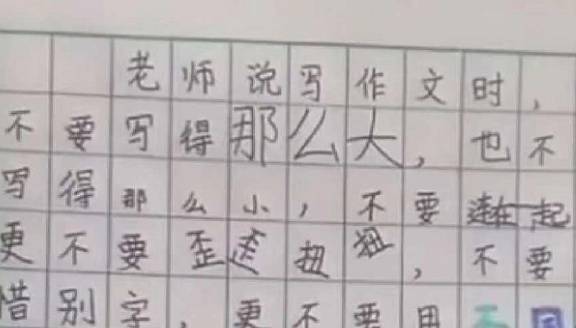 老师说写作文时，
不要写得那么大，也不
写得那么小，不要连在一起
更不要歪歪扭扭，不要
错别字，更不要用不同